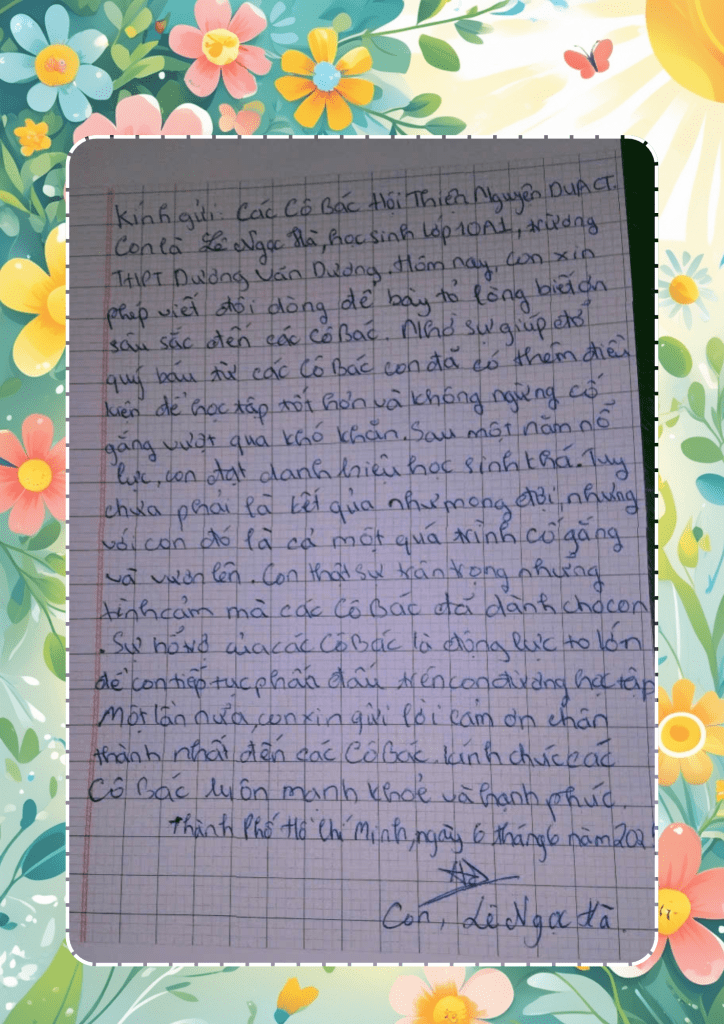 Kính gửi: Các Cô Bác Hội Thiện Nguyện DUACT.
Con là Lê Ngọc Hà, học sinh lớp 10A1, trường
THPT Dương Văn Dương. Hôm nay, con xin
phép viết đôi dòng để bày tỏ lòng biết ơn
sâu sắc đến các Cô Bác. Nhờ sự giúp đỡ
quý báu từ các Cô Bác con đã có thêm điều
kiện để học tập tốt hơn và không ngừng cố
gắng vượt qua khó khăn. Sau một năm nỗ
lực, con đạt danh hiệu học sinh khá. Tuy
chưa phải là kết quả như mong đợi, nhưng
với con đó là cả một quá trình cố gắng
và vươn lên. Con thật sự trân trọng những
tình cảm mà các Cô Bác đã dành cho con
. Sự hỗ trợ của các Cô Bác là động lực to lớn
để con tiếp tục phấn đấu trên con đường học tập
Một lần nữa, con xin gửi lời cảm ơn chân
thành nhất đến các Cô Bác. Kính chúc các
Cô Bác luôn mạnh khoẻ và hạnh phúc.
Thành Phố Hồ Chí Minh, ngày 6 tháng 6 năm
Hà
Con, Lê Ngọc Hà.